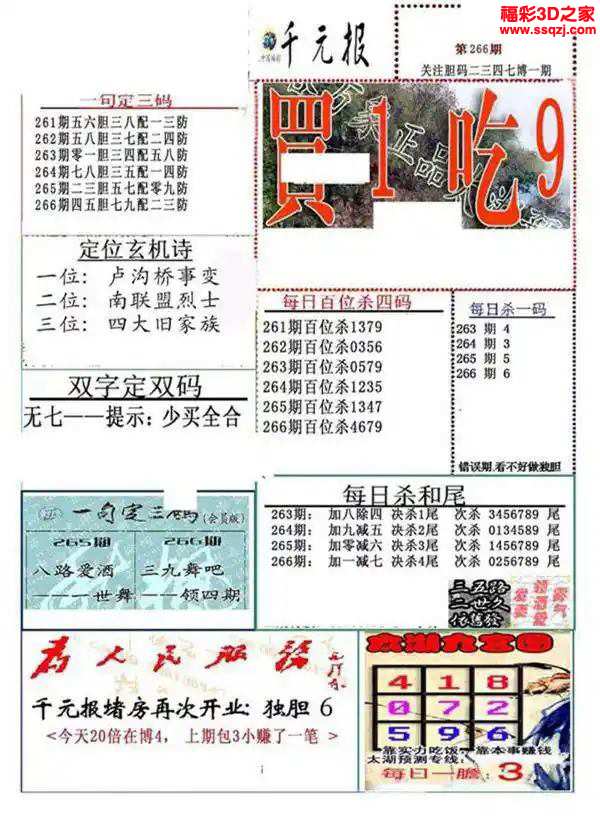 福彩3D之家
www.ssqzj.com
千元报
第266期
关注胆码二三四七博一期
一句定三码
261期五六胆三八配一三防
262期五八胆三七配二四防
263期零一胆三四配五八防
264期七八胆三五配一四防
265期二三胆五七配零九防
266期四五胆七九配二三防
買1吃9
定位玄机诗
一位：卢沟桥事变
二位：南联盟烈士
三位：四大旧家族
每日百位杀四码
261期百位杀1379
262期百位杀0356
263期百位杀0579
264期百位杀1235
265期百位杀1347
266期百位杀4679
每日杀一码
263 期 4
264 期 3
265 期 5
266 期 6
错误期,看不好做独胆
双字定双码
无七——提示：少买全合
一句定三码(会员版)
265期
八路爱酒
——一世舞
266期
三九舞吧
——领四期
每日杀和尾
263期： 加八除四 决杀1尾 次杀 3456789 尾
264期： 加九减五 决杀2尾 次杀 0134589 尾
265期： 加零减六 决杀3尾 次杀 1456789 尾
266期： 加一减七 决杀4尾 次杀 0256789 尾
三五路
二世久
依速發
为人民服务
千元报堵房再次开业：独胆 6
<今天20倍在博4， 上期包3小赚了一笔 >
太湖九宫图
4 1 8
0 7 2
5 9 6
靠实力吃饭，靠本事赚钱
太湖预测专线：
每日一胆：3